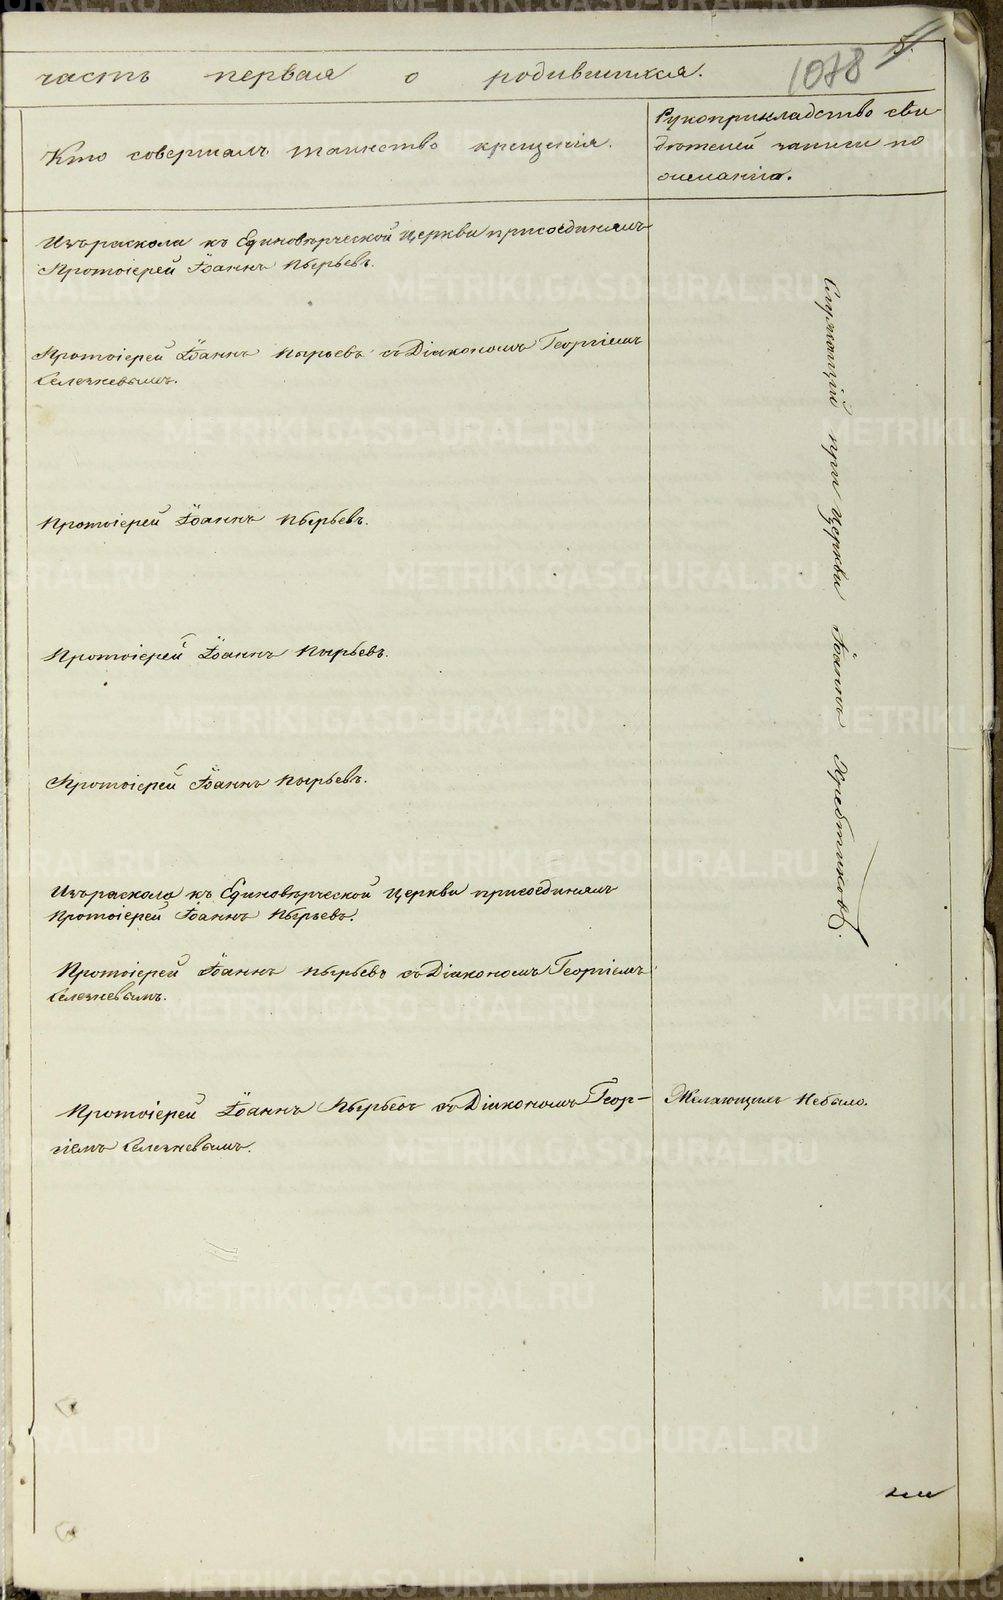 часть первая о родившихся.
1078
5.
Кто совершалъ таинство крещенія.
Рукоприкладство сви
дѣтелей записи по
желанію.
Изъ раскола къ Единовѣрческой Церкви присоединялъ
Протоіерей Іоаннъ Пырьевъ.
Протоіерей Іоаннъ Пырьевъ съ Діакономъ Георгіемъ
Селезневымъ.
Протоіерей Іоаннъ Пырьевъ.
Протоіерей Іоаннъ Пырьевъ.
Протоіерей Іоаннъ Пырьевъ.
Изъ раскола къ Единовѣрческой Церкви присоединялъ
Протоіерей Іоаннъ Пырьевъ.
Протоіерей Іоаннъ Пырьевъ съ Діакономъ Георгіемъ
Селезневымъ.
Протоіерей Іоаннъ Пырьевъ съ Діакономъ Геор-
гіемъ Селезневымъ.
Служащій при Церкви Іоаннъ
Желающихъ Небыло.
METRIKI.GASO-URAL.RU